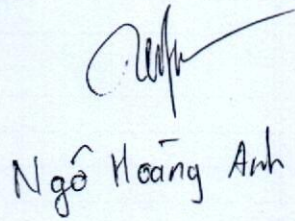 Ngô Hoàng Anh